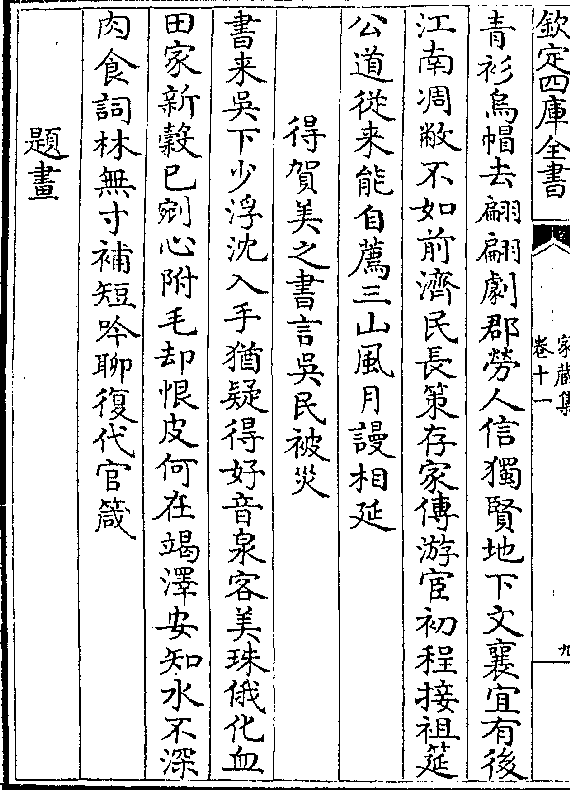 欽定四庫全書
家藏集
卷十一
九
青衫烏帽去翩翩劇郡勞人信獨賢地下文襄宜有後
江南凋敝不如前濟民長策存家傳游宦初程接祖筵
公道從来能自薦三山風月謾相延
得賀美之書言吳民被災
書来吳下少浮沈入手猶疑得好音泉客美珠俄化血
田家新穀已剜心附毛却恨皮何在竭澤安知水不深
肉食詞林無寸補短吟聊復代官箴
題畫